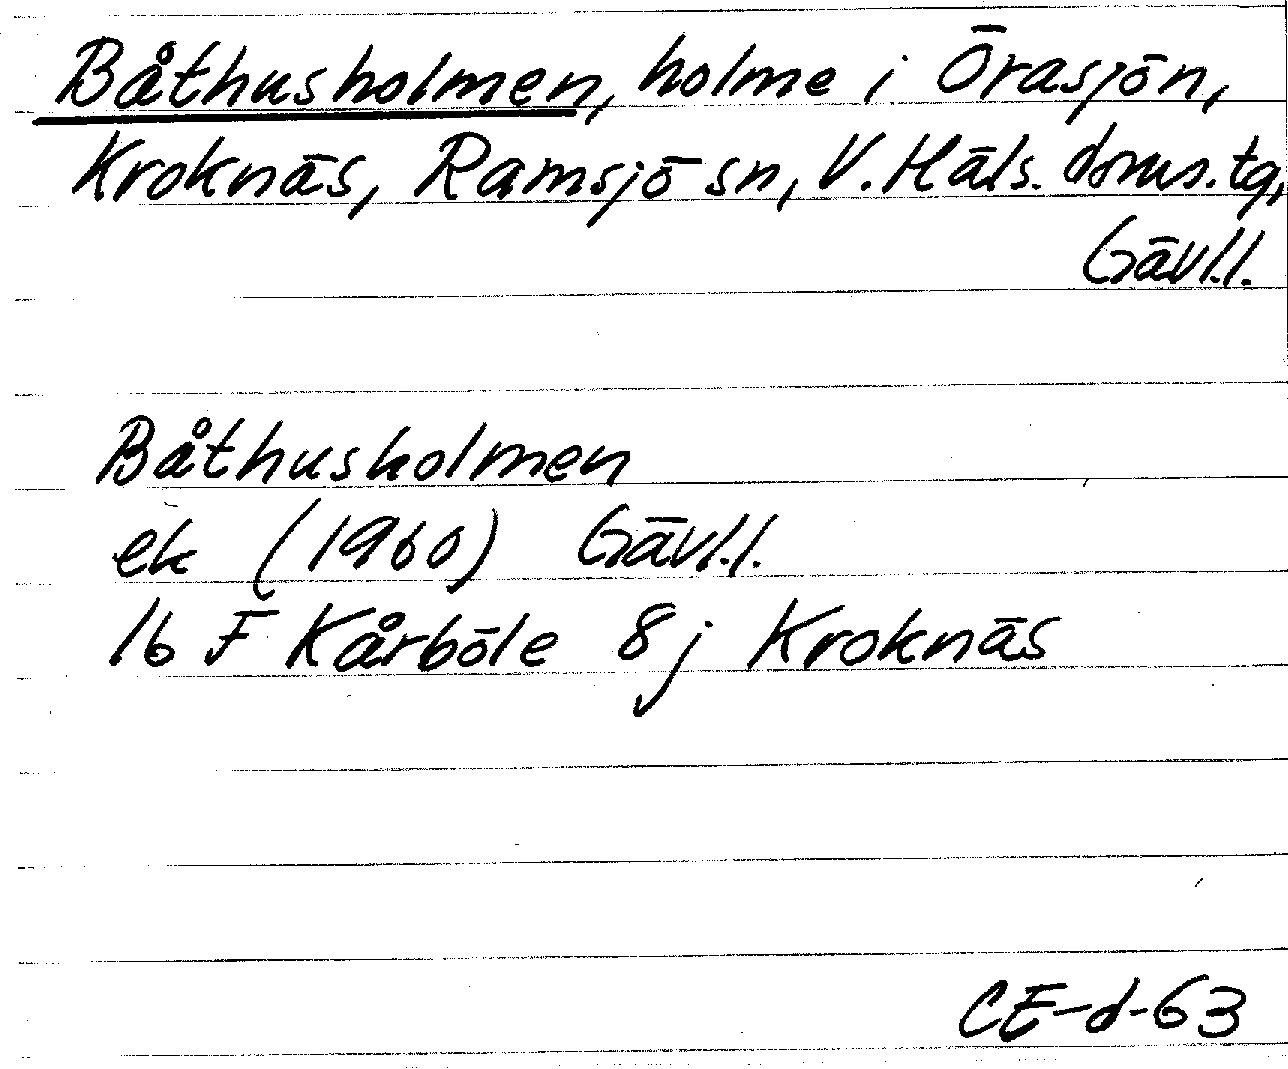 Båthusholmen, holme i Örasjön,
Kroknäs, Ramsjö sn, V. Häls. doms. tg,
Gävl.l.
Båthusholmen
ek (1960) Gävl.l.
16 F Kårböle 8j Kroknäs
CE-d-63